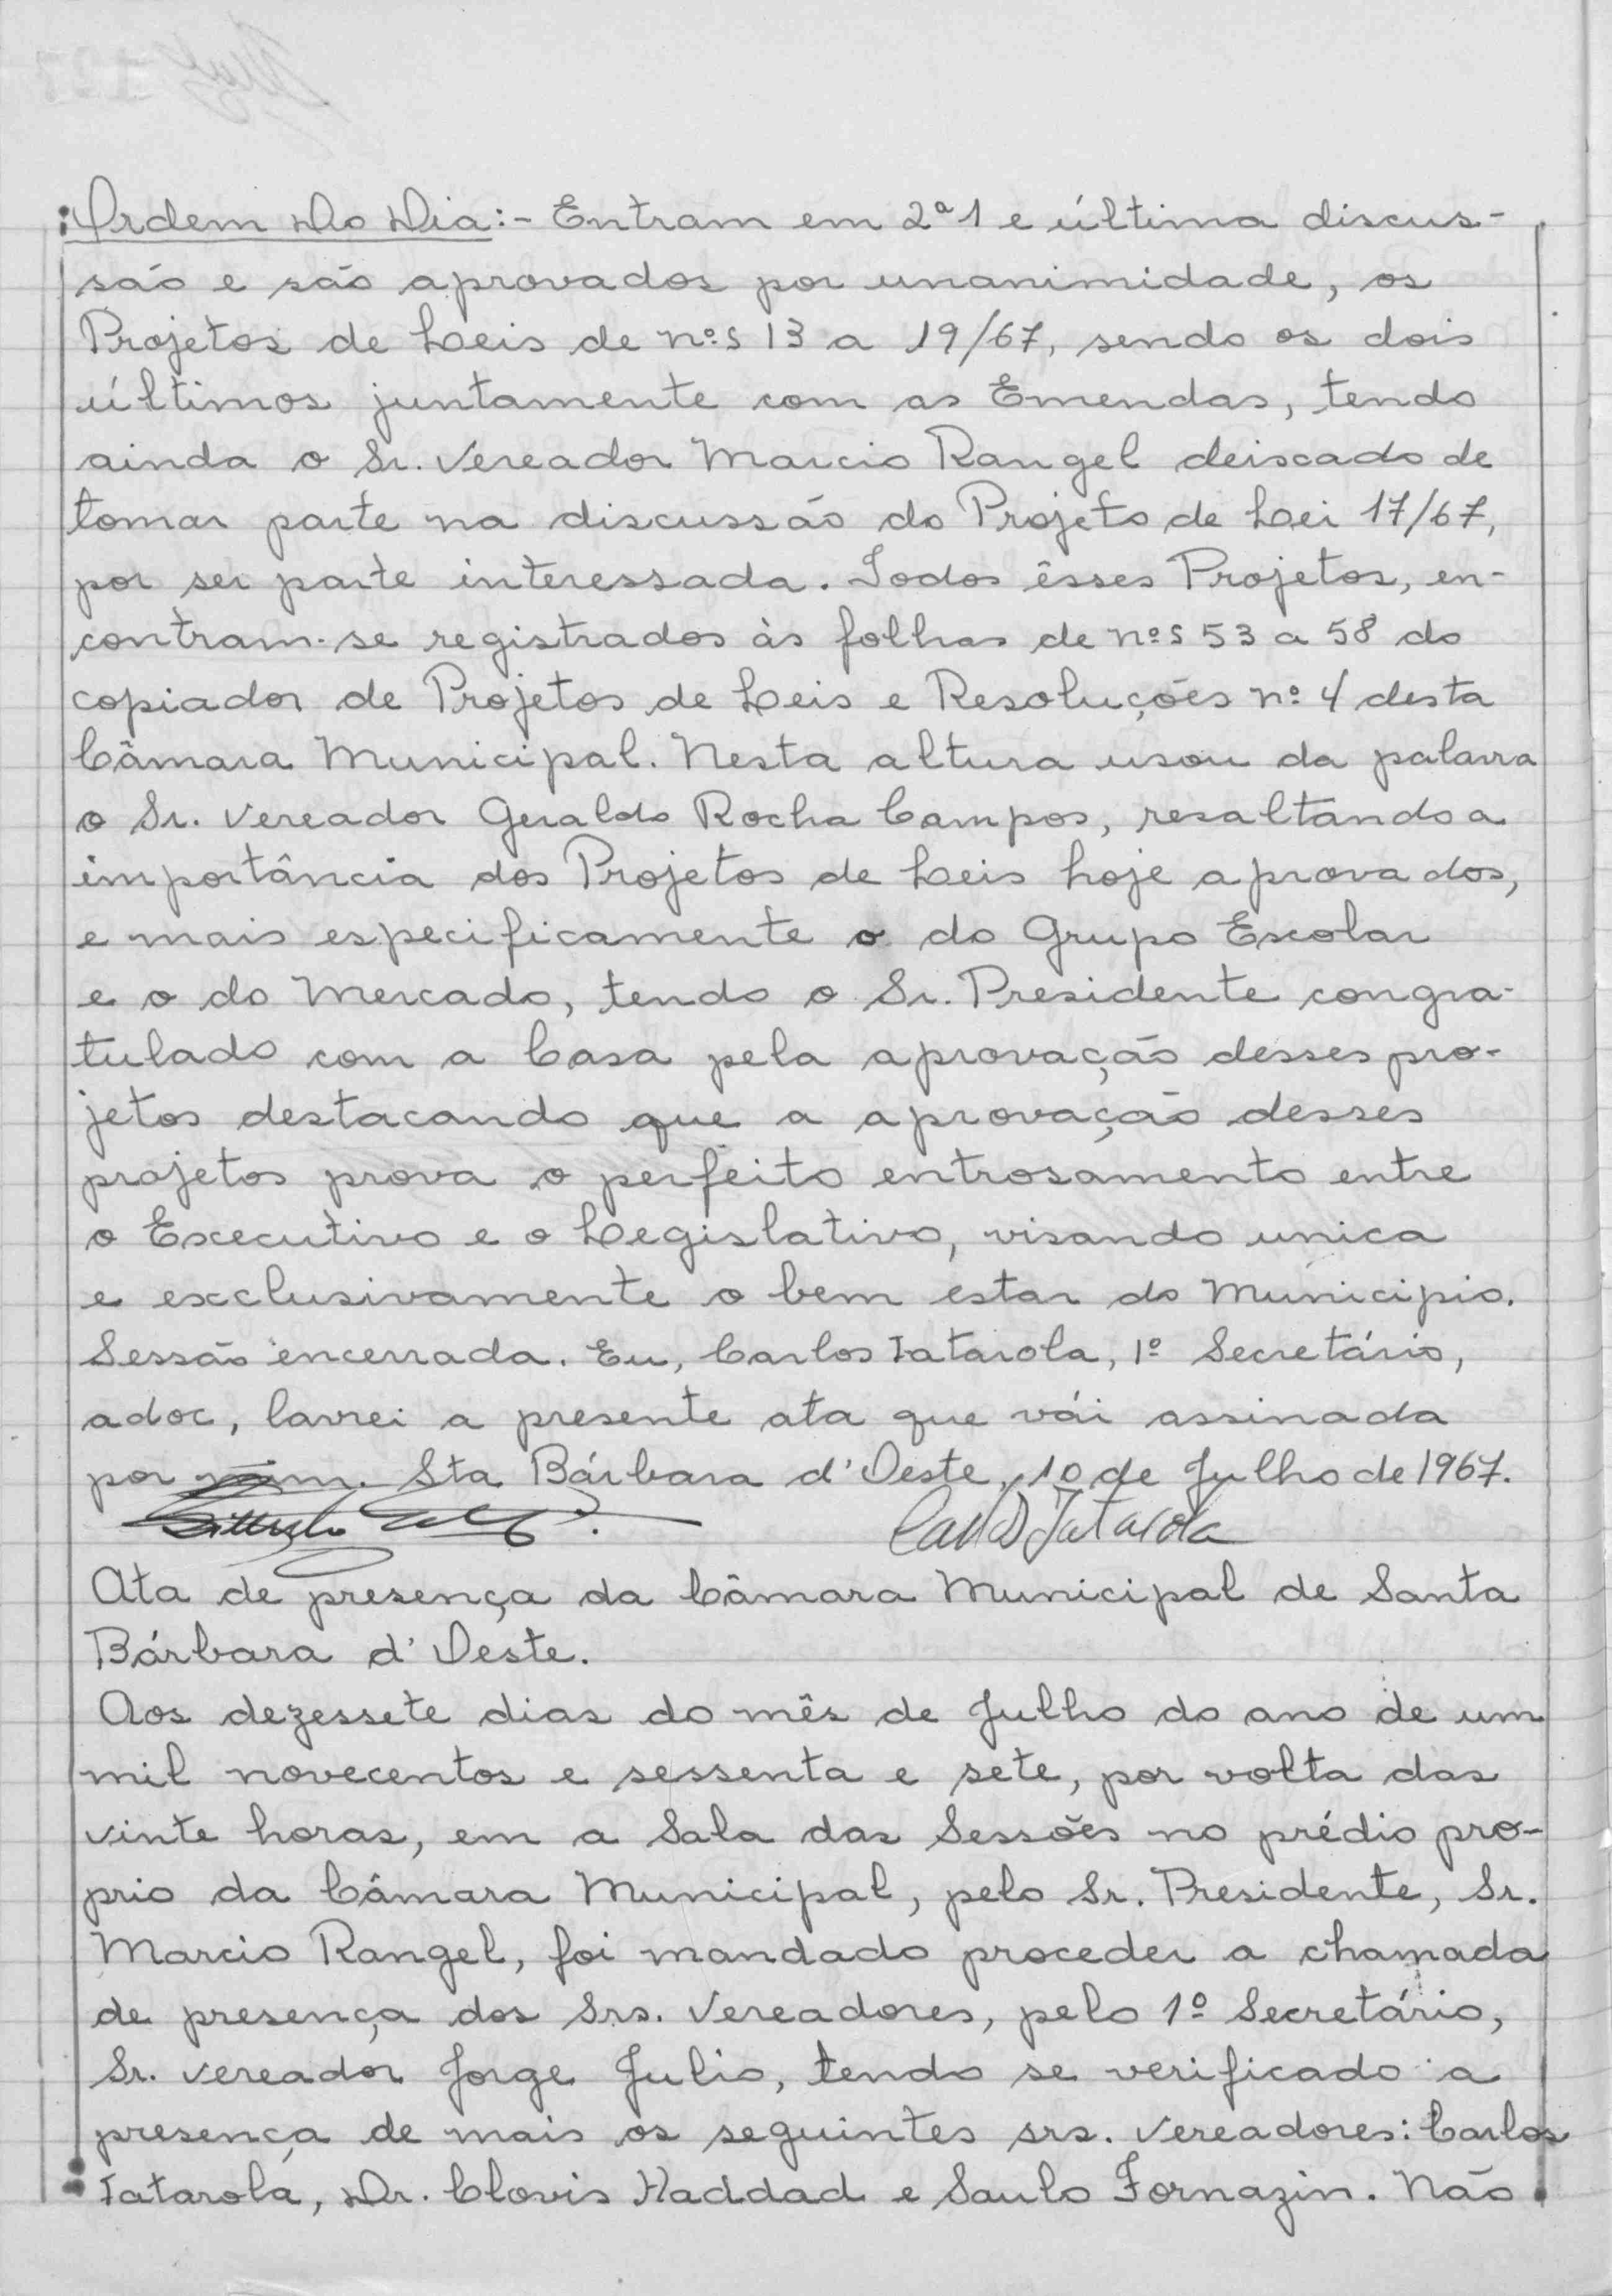 Ordem Do Dia:- Entram em 2ª1 e última discus-
são e são aprovados por unanimidade, os
Projetos de Leis de nºs 13 a 19/67, sendo os dois
últimos juntamente com as Emendas, tendo
ainda o Sr. Vereador Marcio Rangel deixado de
tomar parte na discussão do Projeto de Lei 17/67,
por ser parte interessada. Todos êsses Projetos, en-
contram-se registrados às folhas de nºs 53 a 58 do
copiador de Projetos de Leis e Resoluções nº 4 desta
Câmara Municipal. Nesta altura usou da palavra
o Sr. Vereador Geraldo Rocha Campos, resaltando a
importância dos Projetos de Leis hoje aprovados,
e mais especificamente o do Grupo Escolar
e o do Mercado, tendo o Sr. Presidente congra-
tulado com a Casa pela aprovação desses pro-
jetos destacando que a aprovação desses
projetos prova o perfeito entrosamento entre
o Executivo e o Legislativo, visando unica
e exclusivamente o bem estar do Municipio.
Sessão encerrada. Eu, Carlos Tatarola, 1º Secretário,
adoc, lavrei a presente ata que vái assinada
por mim. Sta Bárbara d'Oeste, 10 de Julho de 1967.
Carlos Tatarola
Ata de presença da Câmara Municipal de Santa
Bárbara d'Oeste.
Aos dezessete dias do mês de Julho do ano de um
mil novecentos e sessenta e sete, por volta das
vinte horas, em a Sala das Sessões no prédio pro-
prio da Câmara Municipal, pelo Sr. Presidente, Sr.
Marcio Rangel, foi mandado proceder a chamada
de presença dos Srs. Vereadores, pelo 1º Secretário,
Sr. Vereador Jorge Julio, tendo se verificado a
presença de mais os seguintes srs. Vereadores: Carlos
Tatarola, Dr. Clovis Haddad e Saulo Fornazin. Não